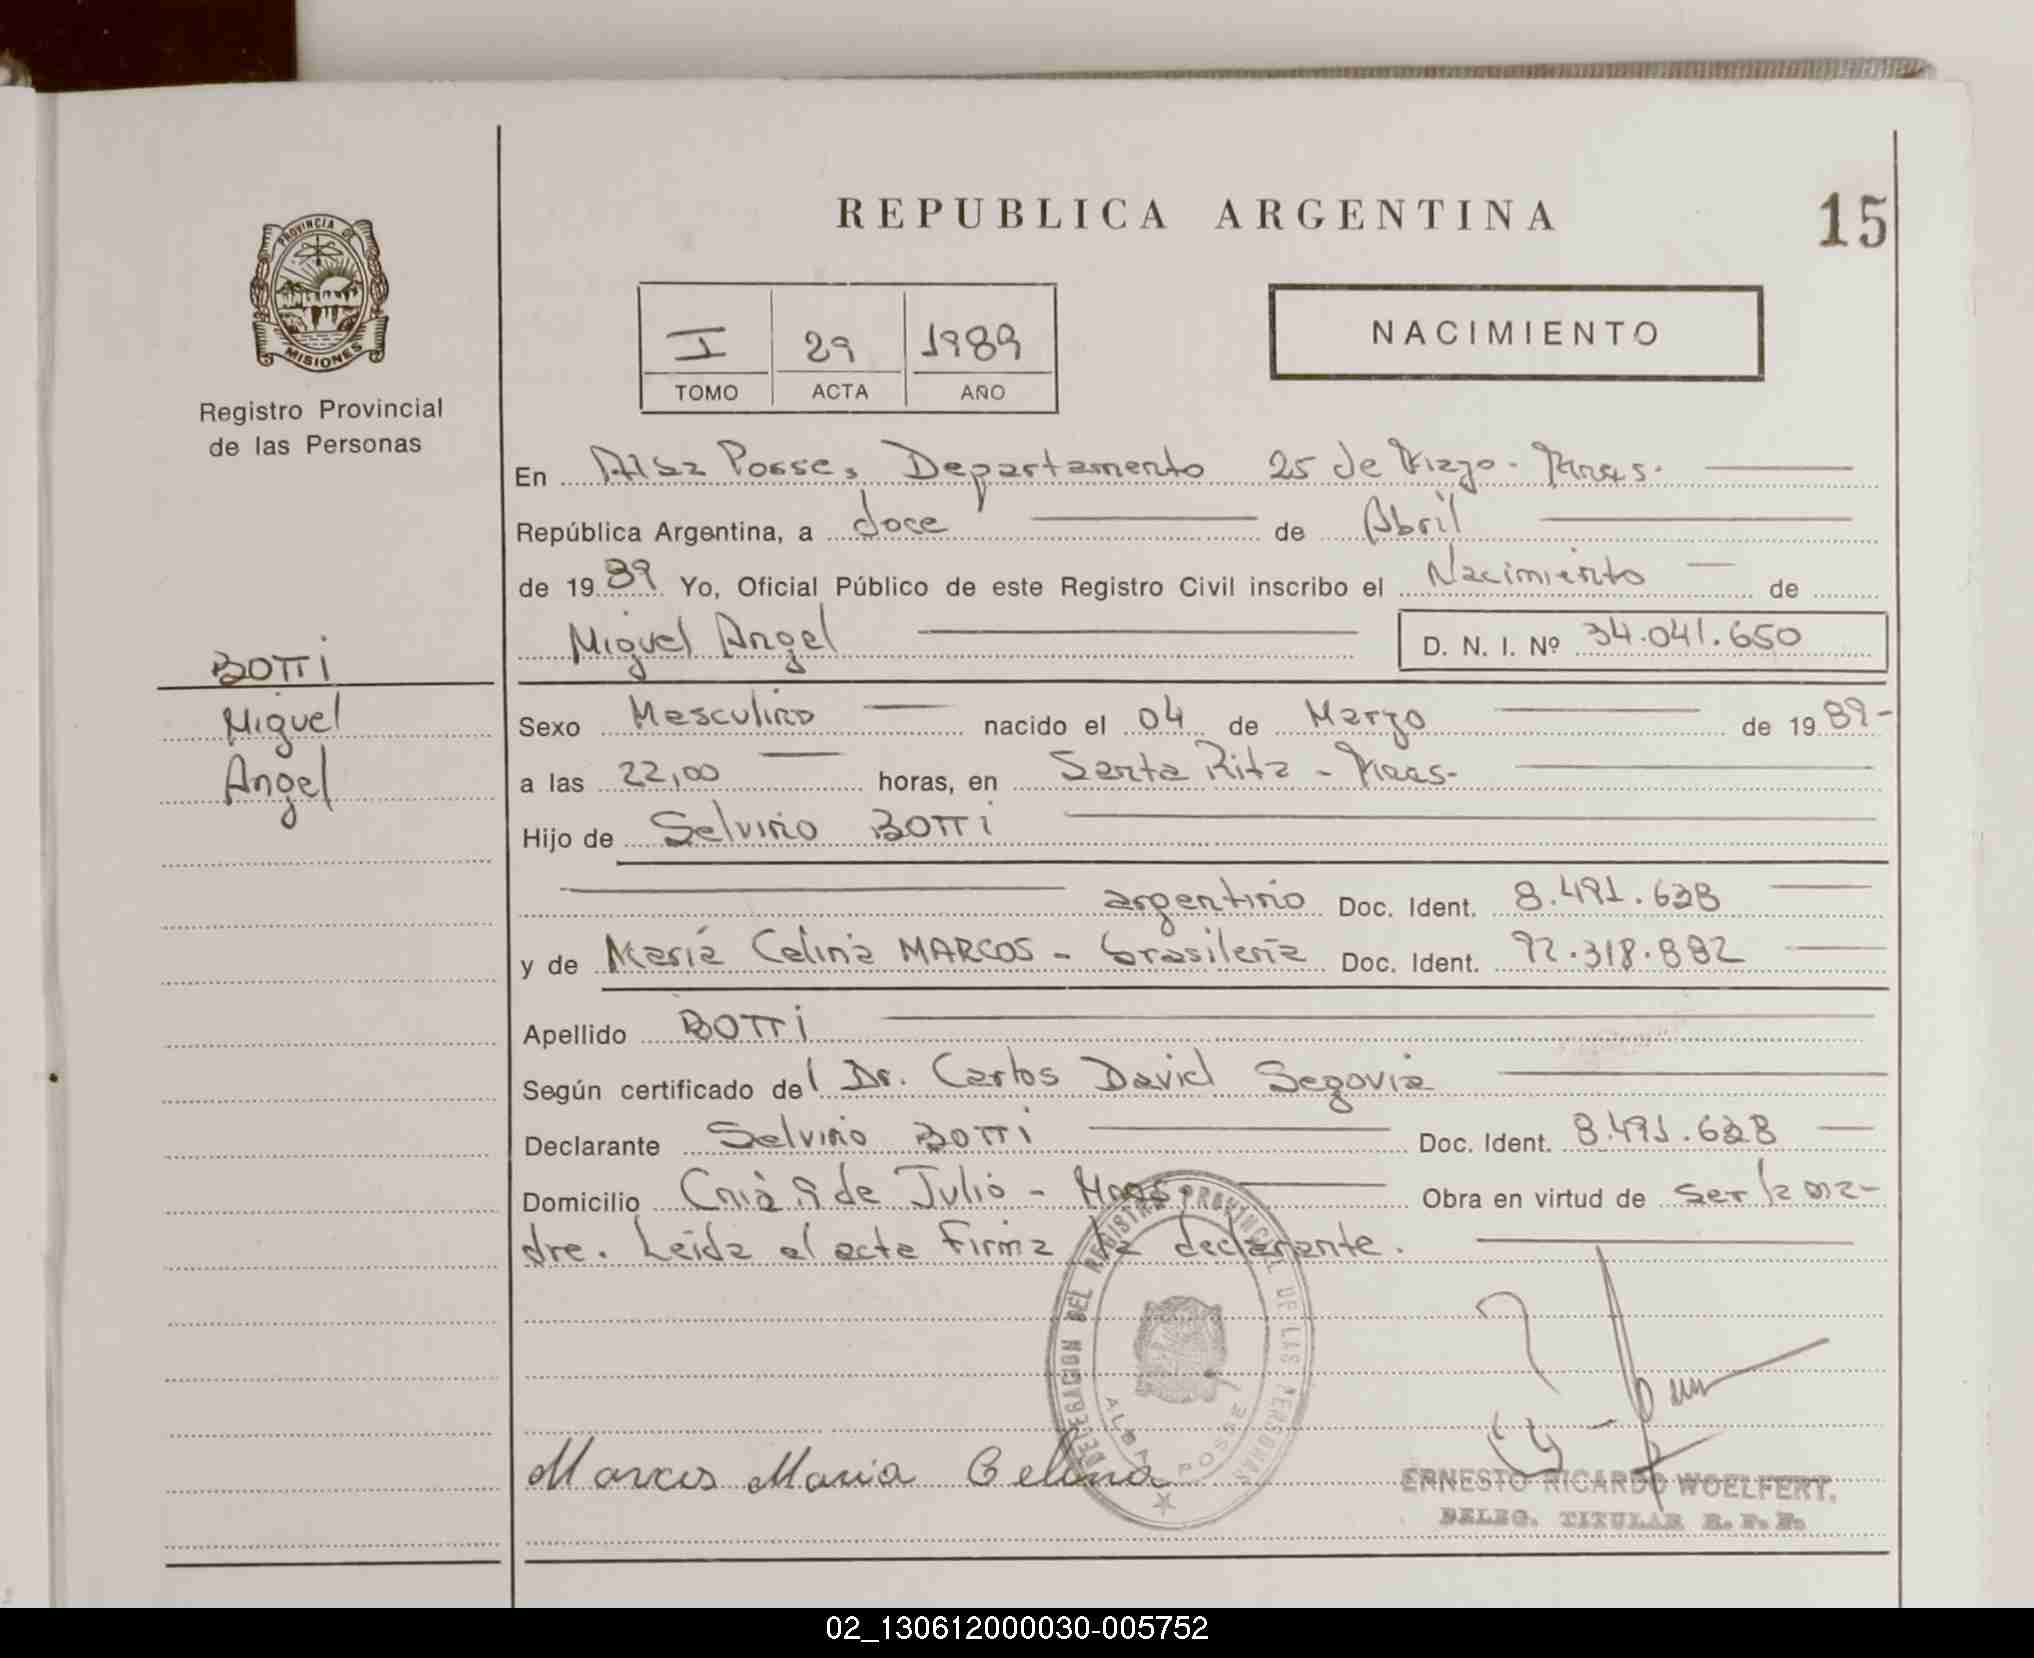 REPUBLICA ARGENTINA
15
PROVINCIA DE
MISIONES
Registro Provincial
de las Personas
I 29 1989
TOMO ACTA AÑO
NACIMIENTO
En Alba Posse, Departamento 25 de Mayo - Mnes.
República Argentina, a doce de Abril
de 1989 Yo, Oficial Público de este Registro Civil inscribo el Nacimiento de
Miguel Angel D. N. I. Nº 34.041.650
BOTTI
Miguel
Angel
Sexo Masculino nacido el 04 de Marzo de 1989-
a las 22,00 horas, en Santa Rita - Mnes-
Hijo de Selvino BOTTI
argentino Doc. Ident. 8.491.628
y de María Celina MARCOS - brasileña Doc. Ident. 92.318.882
Apellido BOTTI
Según certificado del Dr. Carlos David Segovia
Declarante Selvino BOTTI Doc. Ident. 8.491.628
Domicilio Cnia 9 de Julio - Mnes. Obra en virtud de ser la ma-
dre. Leida el acta firma la declarante.
DELEGACION DEL REGISTRO PROVINCIAL DE LAS PERSONAS
ALBA POSSE
Marcos Maria Celina
ERNESTO RICARDO WOELFERT.
DELEG. TITULAR R. P. P.
02_130612000030-005752